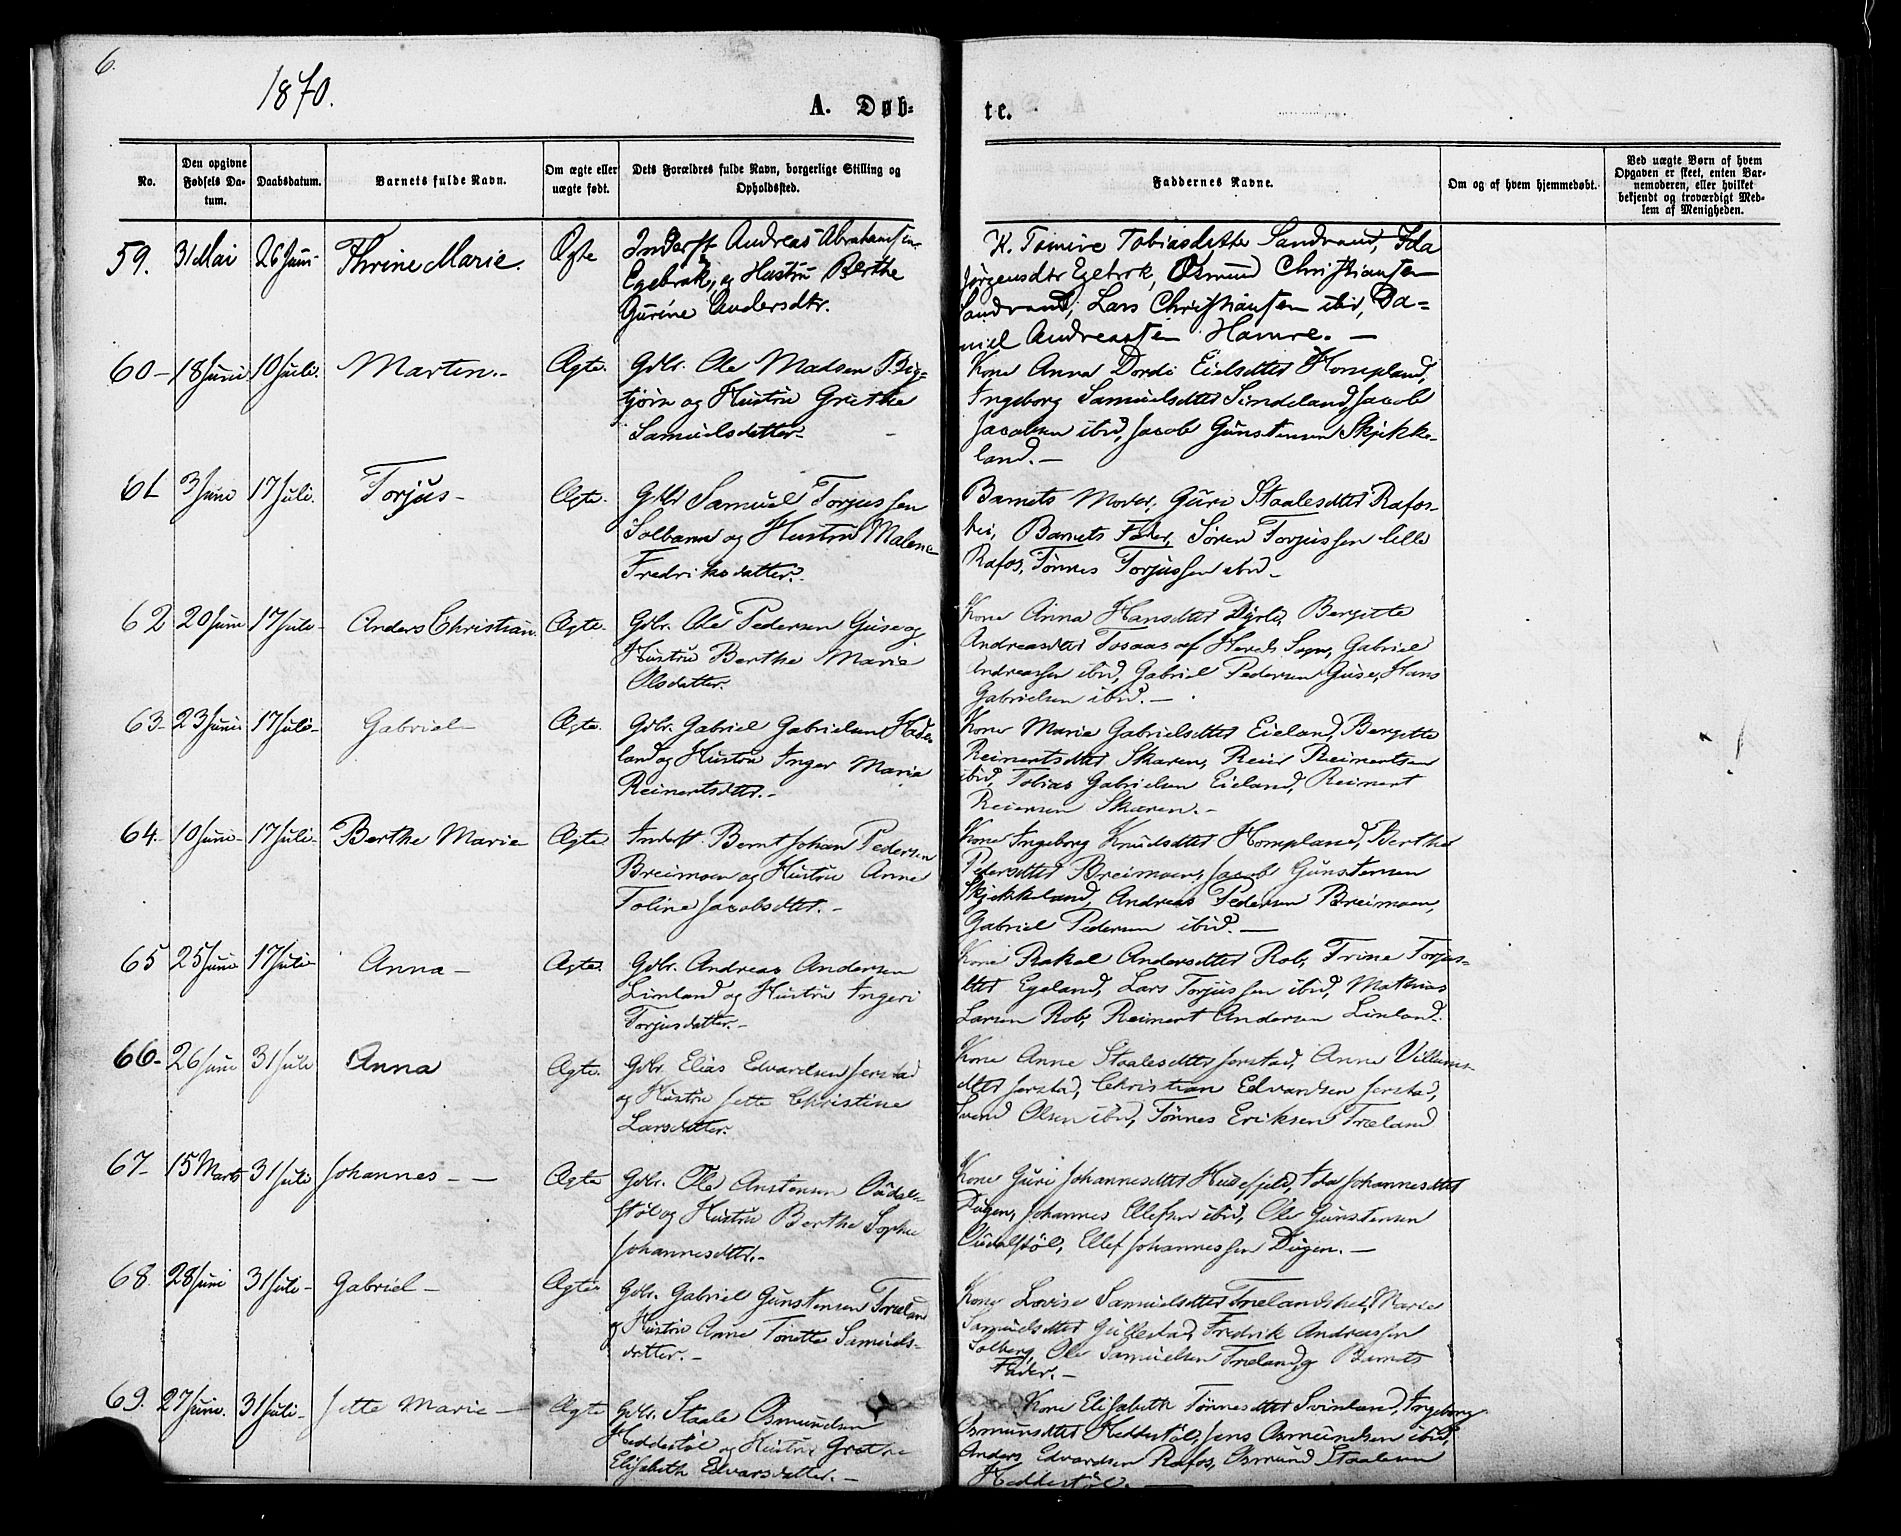 6.
1870.
A. Døb-
te.
No.
Den opgivne Fødsels Da-tum.
Daabsdatum.
Barnets fulde Navn.
Om ægte eller uægte født.
Dets Forældres fulde Navn, borgerlige Stilling og Opholdssted.
Faddernes Navne.
Om og af hvem hjemmedøbt.
Ved uægte Børn af hvem Opgaven er skeet, enten Bar-nemoderen, eller hvilket bekjendt og troværdigt Med-lem af Menigheden.
59. 31 Mai 26 Juni Thrine Marie. Ægte
Inderst Andreas Abrahamsen
Egebrok, og Hustru Berthe
Gurine Andersdtr.
K. Tomine Tobiasdatter Sandvand, Ida
Jørgensdtr Egebrok, Osmund Christiansen
Sandvand, Lars Christiansen ibid, Da-
niel Andreassen Hamre. —
60 - 18 Juni 10 Juli. Marten. - Ægte.
Gdbr. Ole Madsen Big-
tjørn og Hustru Grethe
Samuelsdatter -
Kone Anna Dorde Eielsdtter Hompland,
Ingeborg Samuelsdtter Sindeland, Jacob
Jacobsen ibid, Jacob Gunstensen Skjekke-
land. -
61 3 Juni 17 Juli. Torjus - Ægte.
Gdbr Samuel Torjussen
Solbarm og Hustru Malene
Fredriksdatter.
Barnets Moder, Guri Staalesdtter Rafos-
hei, Barnets Fader, Søren Torjussen lille
Rafos, Tønnes Torjussen ibid -
62 20 Juni 17 Juli - Anders Christian. Ægte.
Gdbr. Ole Pedersen Guse og
Hustru Berthe Marie
Olsdatter.
Kone Anna Hansdtter Dyrli, Bergitte
Andreasdtter Tosaas af Herads Sogn, Gabriel
Andreassen ibid, Gabriel Pedersen Guse, Hans
Gabrielsen ibid. -
63 - 23 Juni 17 Juli - Gabriel - Ægte.
Gdbr. Gabriel Gabrielsen Hade-
land og Hustru Inger Maria
Reinertsdtter. -
Kone Maria Gabrielsdtter Eieland, Bergitte
Reinertsdtter Skaren, Reier Reinertsen
ibid, Tobias Gabrielsen Eieland, Reinert
Reiersen Skaren. -
64. 10 Juni - 17 Juli - Berthe Marie Ægte
Inderst. Bernt Johan Pedersen
Breimoen og Hustru Anne
Toline Jacobsdtter. -
Kone Ingeborg Knudsdtter Hompland, Berthe
Pedersdtter Breimoen, Jacob Gunstensen
Skjekkeland, Andreas Pedersen Breimoen,
Gabriel Pedersen ibid. —
65 25 Juni 17 Juli Anna - Ægte.
Gdbr. Andreas Andersen
Linland og Hustru Ingeri
Torjusdatter. -
Kone Rakel Andersdtter Rob, Trine Torjus-
dtter Egeland, Lars Torjussen ibid, Mathias
Larsen Rob, Reinert Andersen Linland.
66 - 26 Juni 31 Juli Anna Ægte.
Gdbr. Elias Edvardsen Jerstad
og Hustru Jette Christine
Larsdatter.
Kone Anne Staalesdtter Jerstad, Anne Villums-
dtter Jerstad, Christian Edvardsen Jerstad,
Svend Olsen ibid, Tønnes Eriksen Træland
67 - 15 Marts 31 Juli Johannes - - Ægte
Gdbr. Ole Anstensen Oudal-
støl og Hustru Berthe Sophie
Johannesdtter. -
Kone Guri Johannesdtter Hudefjeld, Ida Johannesdtter
Dugen, Johannes Ellefsen ibid, Ole Gunstensen
Oudalstøl, Ellef Johannessen Dugen. -
68. 28 Juni 31 Juli - Gabriel - Ægte
Gdbr. Gabriel Gunstensen Træland
og Hustru Anne Tonette Samuels-
datter. -
Kone Lovise Samuelsdtter Trælandshei, Marie
Samuelsdtter Gullestad, Fredrik Andreassen
Solberg, Ole Samuelsen Træland og Barnets
Fader. -
69. 27 Juni. 31 Juli - Jette Marie - Ægte
Gdbr. Staale Osmundsen
Heddestøl og Hustru Grethe
Elisabeth Edvarsdatter. -
Kone Elisabeth Tønnesdtter Svinland, Ingeborg
Osmundsdtter Heddestøl, Jens Osmundsen ibid,
Anders Edvardsen Rafos, Osmund Staalesen
Heddestøl. —